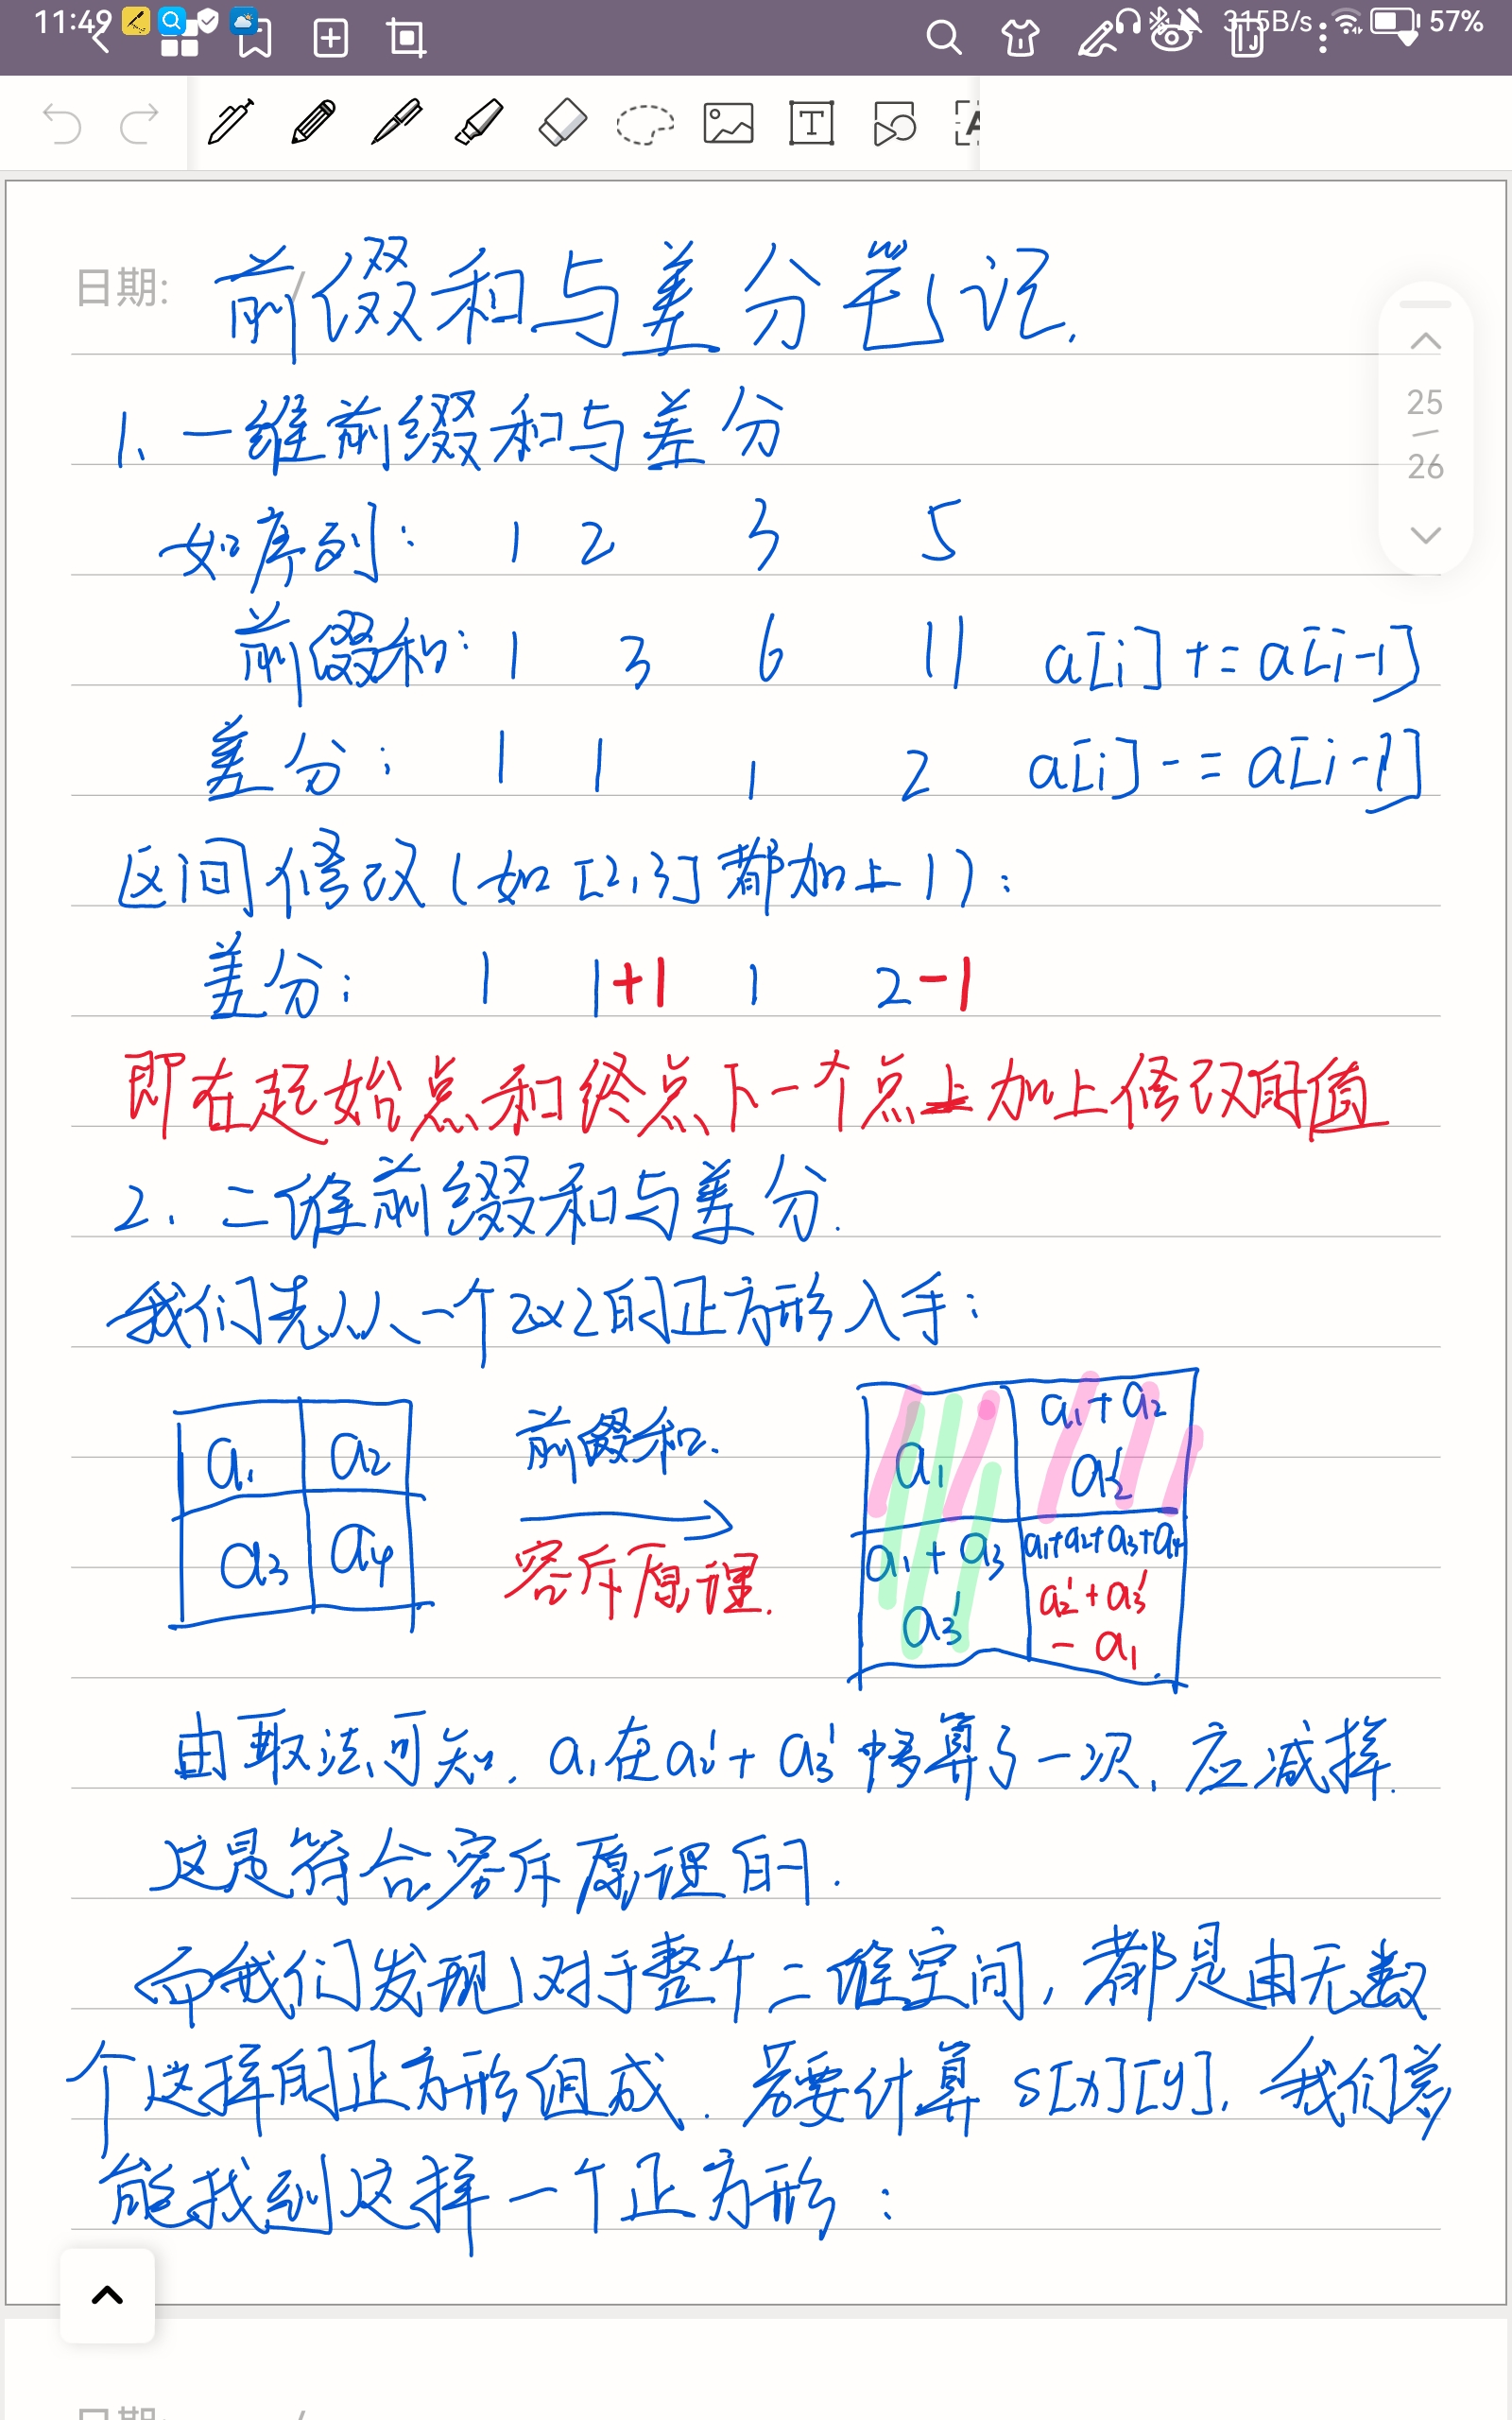 11:49
315B/s
57%
T
A
日期: /
前缀和与差分笔记.
25
26
1. 一维前缀和与差分
如序列: 1 2 3 5
前缀和: 1 3 6 11 a[i] += a[i-1]
差分: 1 1 1 2 a[i] -= a[i-1]
区间修改(如[2,3]都加上1):
差分: 1 1+1 1 2-1
即在起始点和终点下一个点上加上修改的值
2. 二维前缀和与差分.
我们先从一个2x2的正方形入手:
a1 a2
a3 a4
前缀和.
容斥原理.
a1
a1+a2
a2'
a1+a3
a3'
a1+a2+a3+a4
a2'+a3'
- a1
由取法可知, a1在a2'+a3'中多算了一次, 应减掉.
这是符合容斥原理的.
而我们发现,对于整个二维空间, 都是由无数
个这样的正方形组成. 若要计算 s[x][y], 我们总
能找到这样一个正方形:
日期: /